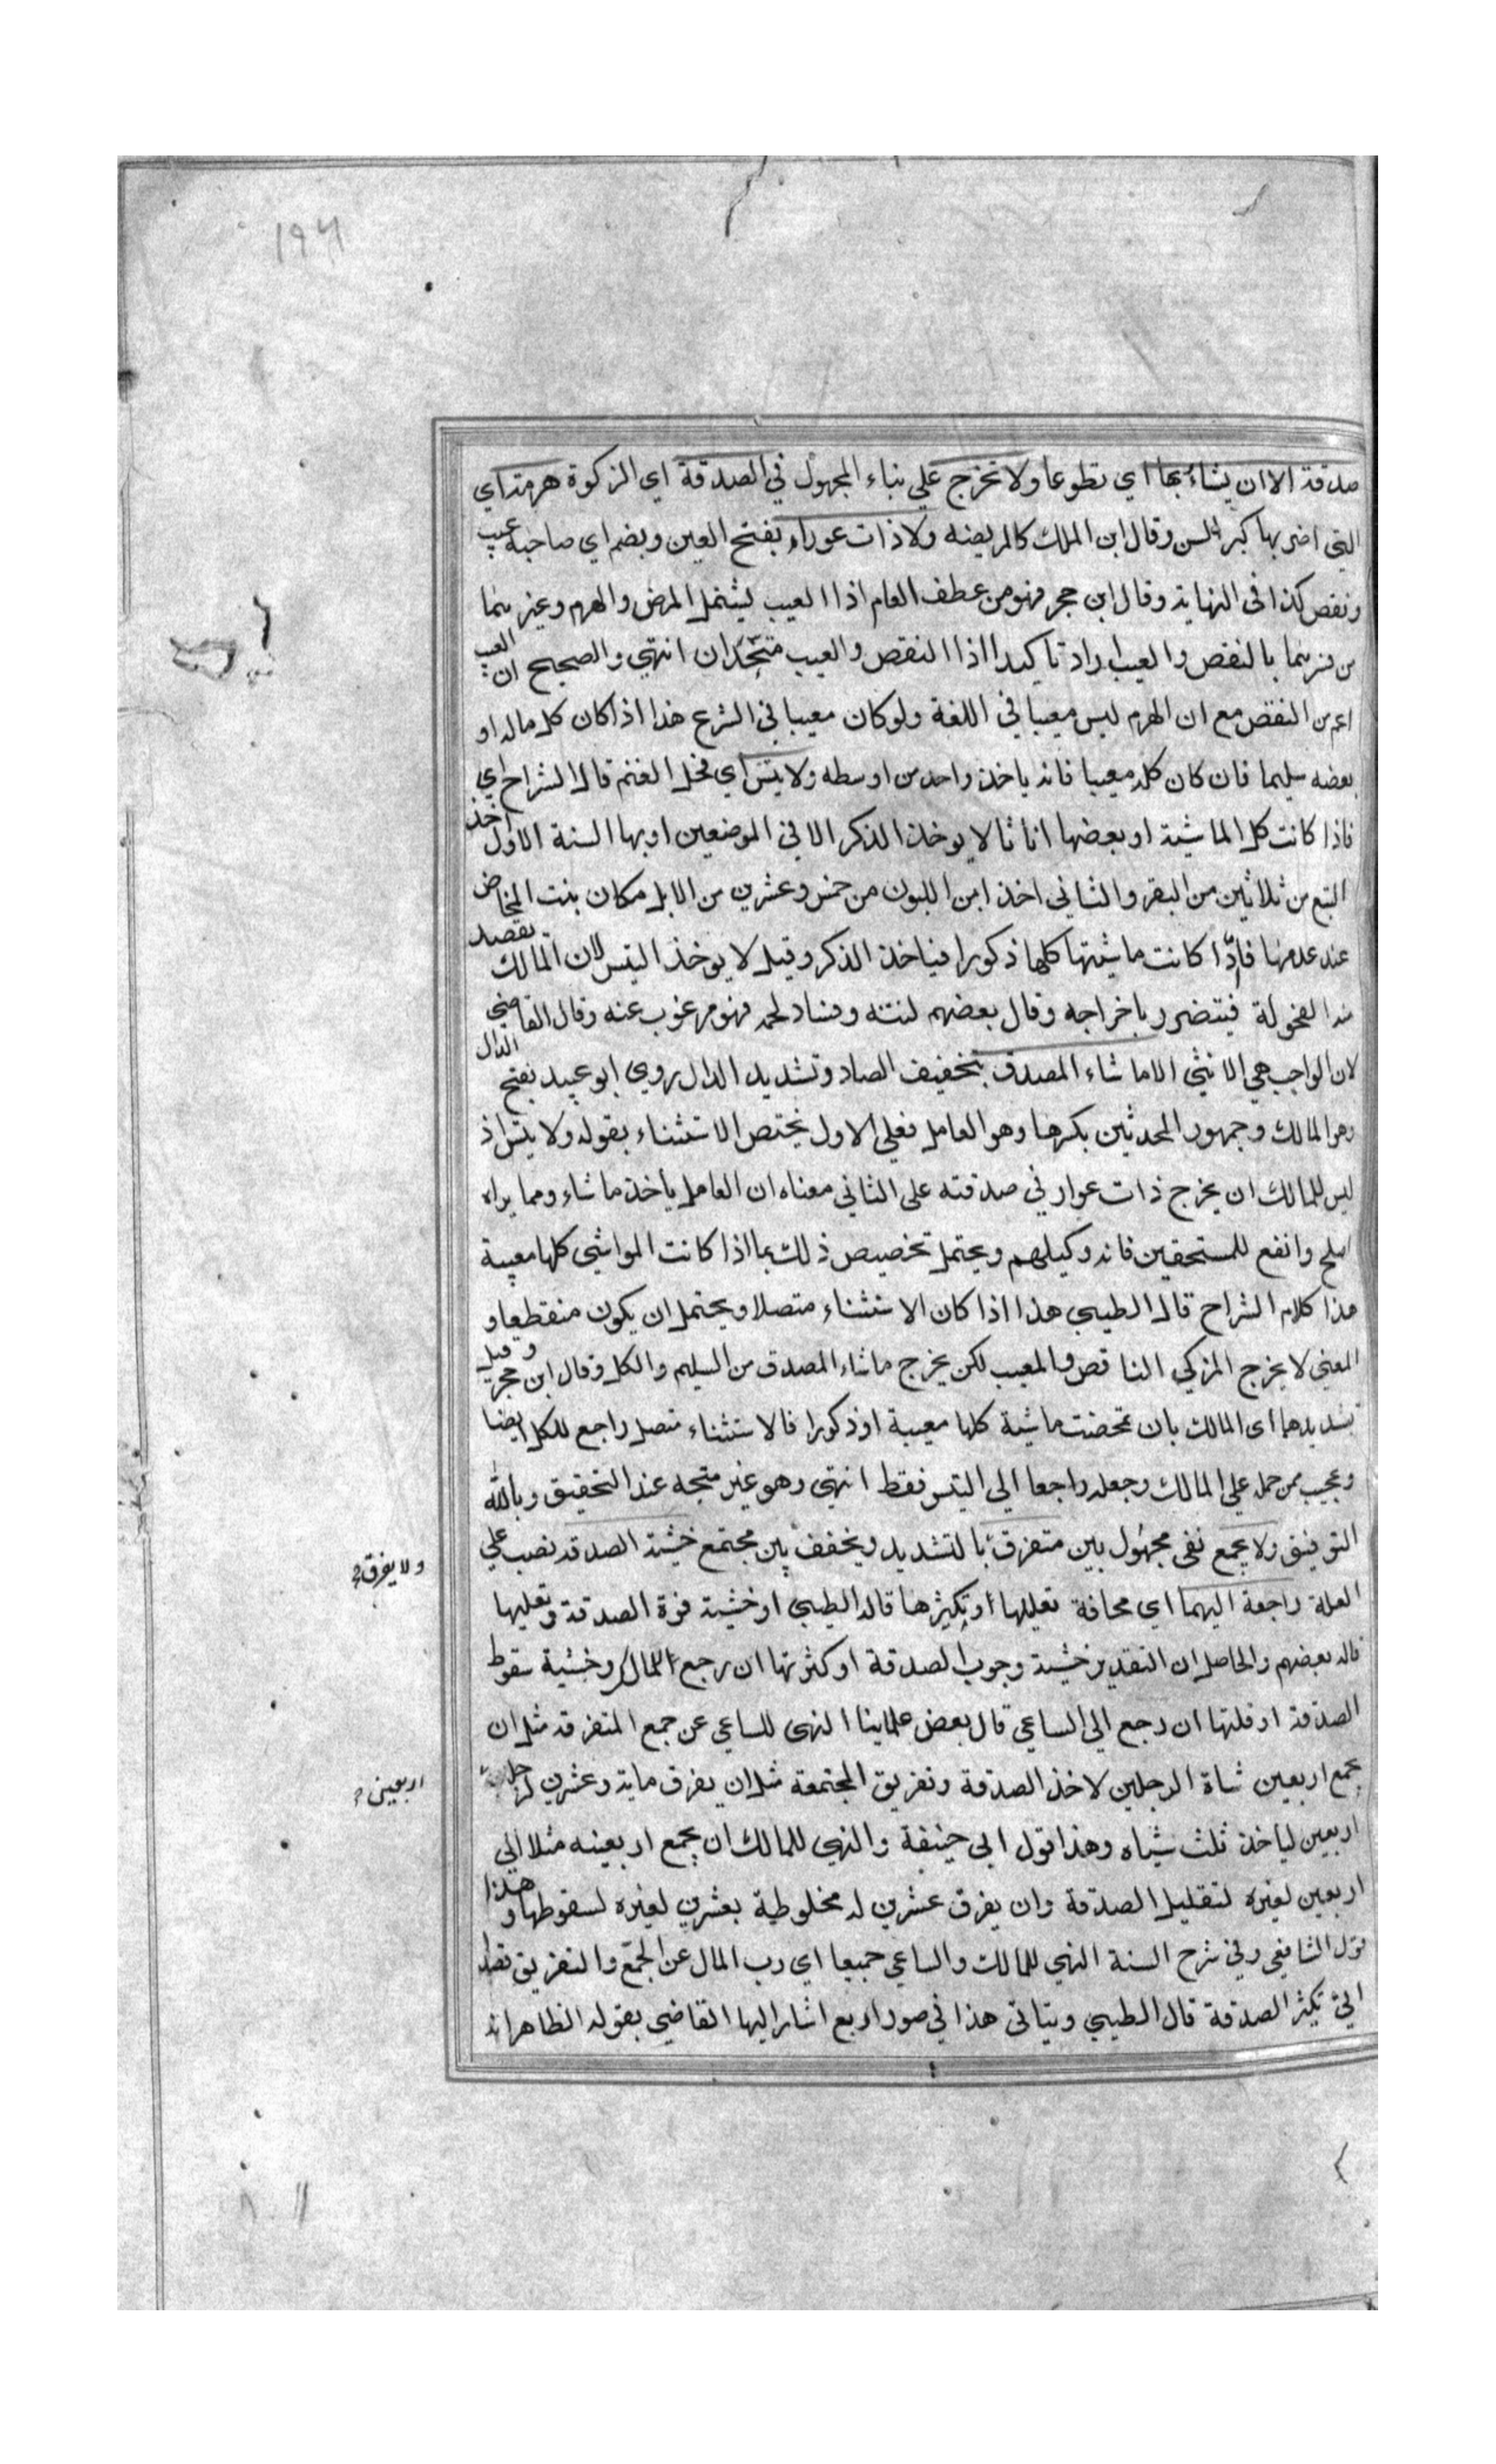 ١٩٦
صدقة الا ان يشاء بها اي تطوعا ولا تخرج علي بناء المجهول في الصدقة اي الزكوة هرمة اي
التي اضر بها كبر السن وقال ابن الملك كالمريضه ولا ذات عوار بفتح العين وبضم اي صاحبة عيب
ونقص كذا فى النهاية وقال ابن حجر فهو من عطف العام اذ العيب يشتمل المرض والهرم وغيرهما
من فسرهما بالنقص والعيب اراد تاكيدا اذا النقص والعيب متحدان انتهي والصحيح ان العيب
اعم من النقص مع ان الهرم ليس معيبا في اللغة ولو كان معيبا في الشرع هذا اذا كان كل ماله او
بعضه سليما فان كان كله معيبا فانه ياخذ واحد من اوسطه ولا تيس اي فحل الغنم قال الشراح اي
فاذا كانت كل الماشية او بعضها اناثا لا يوخذ الذكر الا في الموضعين اوبها السنة الاول اخذ
التبع من ثلاثين من البقر والثاني اخذ ابن اللبون من خمس وعشرين من الابل مكان بنت المخاض
عند عدمها فاذا كانت ماشيتها كلها ذكورا فياخذ الذكر وقيل لا يوخذ التيس لان المالك يقصد
منه الفحولة فيتضرر باخراجه وقال بعضهم لنتنه وفساد لحمه فهو مرغوب عنه وقال القاضي
لان الواجب هي الانثي الا ما شاء المصدق بتخفيف الصاد وتشديد الدال روي ابو عبيد بفتح الدال
وهو المالك وجمهور المحدثين بكسرها وهو العامل فعلي الاول يختص الاستثناء بقوله ولا تيس اذ
ليس للمالك ان يخرج ذات عوار في صدقته على الثاني معناه ان العامل ياخذ ما شاء ومما يراه
اصلح وانفع للمستحقين فانه وكيلهم ويحتمل تخصيص ذلك بما اذا كانت المواشي كلها معيبة
هذا كلام الشراح قال الطيبي هذا اذا كان الاستثناء متصلا ويحتمل ان يكون منقطعا و
المعني لا يخرج المزكي الناقص والمعيب لكن يخرج ما شاء المصدق من السليم والكل وقال ابن حجر وقيل
بتشديدهما اى المالك بان تمحضت ماشية كلها معيبة او ذكورا فالاستثناء متصل راجع للكل ايضا
وعجيب ممن حمل علي المالك وجعله راجعا الي التيس فقط انتهي وهو غير متجه عند التحقيق وبالله
التوفيق ولا يجمع نفى مجهول بين متفرق بالتشديد ويخفف بين مجتمع خشية الصدقة نصب علي
ولا يفرق
العلة راجعة اليهما اي مخافة تقليلها او تكثيرها قال الطيبي او خشية فوة الصدقة وتقليها
قاله بعضهم والحاصل ان التقدير خشية وجوب الصدقة او كثرتها ان رجع للمالك وخشية سقوط
الصدقة او قلتها ان رجع الي الساعي قال بعض علماينا النهى للساعي عن جمع المتفرقة مثل ان
يجمع اربعين شاة الرجلين لاخذ الصدقة وتفريق المجتمعة مثل ان يفرق ماية وعشرين لرجل
اربعين
اربعين لياخذ ثلث شياه وهذا قول ابي حنيفة والنهي للمالك ان يجمع اربعينه مثلا الي
اربعين لغيره لتقليل الصدقة وان يفرق عشرين له مخلوطية بعشرين لغيره لسقوطها وهذا
قول الشافعي وفي شرح السنة النهي للمالك والساعي جميعا اي رب المال عن الجمع والتفريق
الي تكثر الصدقة قال الطيبي ويتاتى هذا في صور اربع اشار اليها القاضي بقوله الظاهر انه